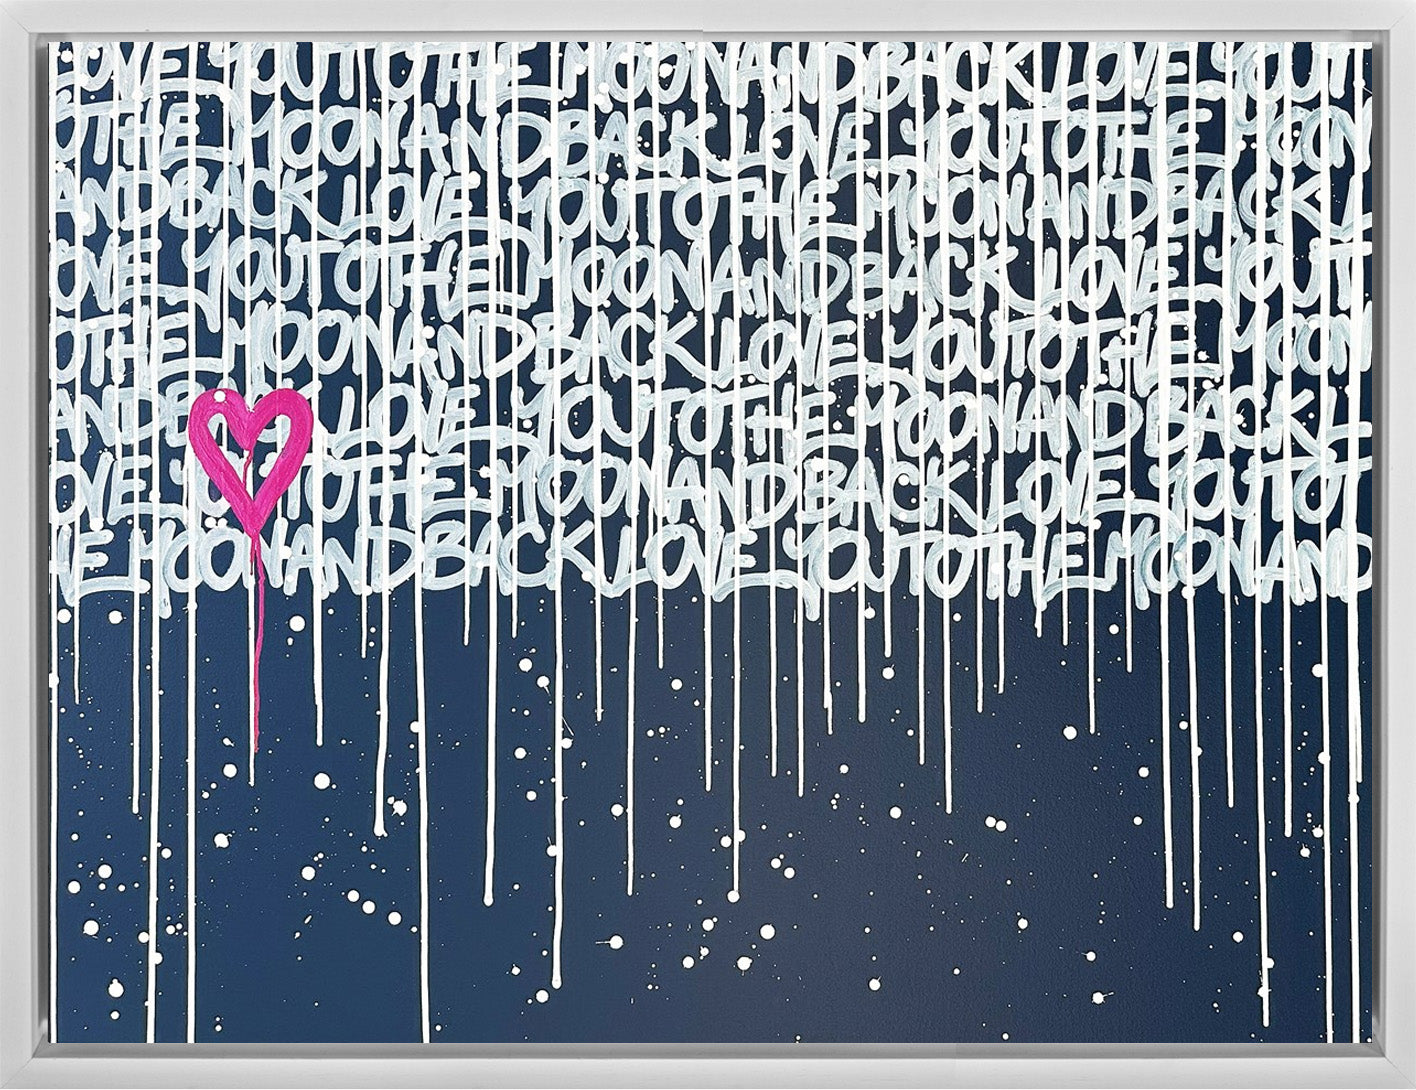 LOVE YOUTOTHE MOONANDBACK LOVE YOUT
OTHE MOONANDBACK LOVE YOUTOTHE MOON
ANDBACK LOVE YOUTOTHE MOONANDBACK L
OVE YOUTOTHE MOONANDBACK LOVE YOUT
OTHE MOONANDBACK LOVE YOUTOTHE MOON
LOVE YOUTOTHE MOONANDBACK L
OVE YOUTOTHE MOONANDBACK LOVE YOUTOT
HE MOONANDBACK LOVE YOUTOTHE MOONAND